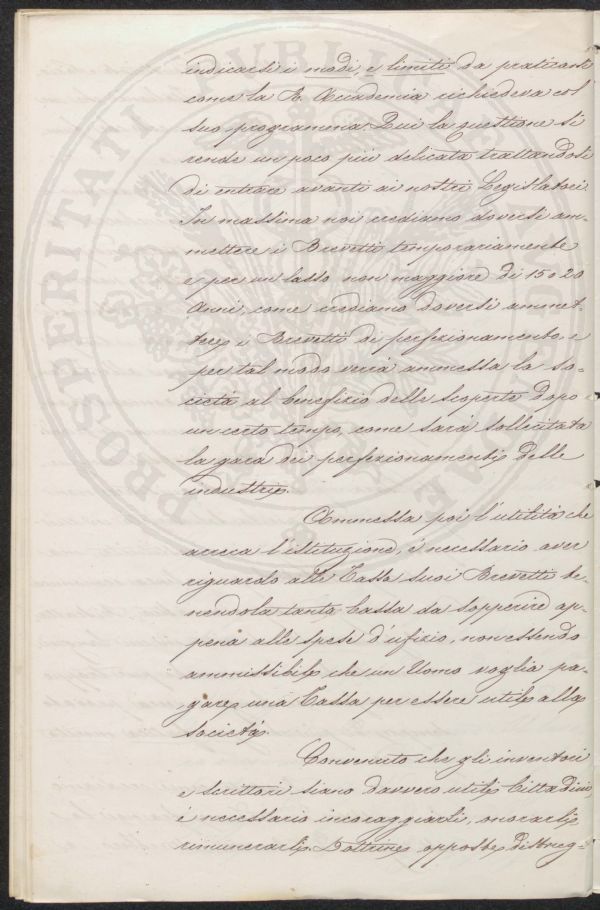 indicarsi i modi, e limiti da praticarsi
come la R. Accademia richiedeva col
suo programma. Qui la questione si
rende un poco più delicata trattandosi
di entrare avanti ai nostri Legislatori.
In massima noi crediamo doversi am-
mettere i Brevetti temporariamente
e per un lasso non maggiore di 15 o 20
Anni, come crediamo doversi ammet-
tere i Brevetti di perfezionamento, e
per tal modo verrà ammessa la so-
cietà al benefizio delle scoperte dopo
un certo tempo, come sarà sollecitata
la gara dei perfezionamenti delle
industrie.
Ammessa poi l'utilità che
arreca l'istituzione, è necessario aver
riguardo alle Tasse suoi Brevetti te-
nendola tanto bassa da sopperire ap-
pena alle spese d'ufizio, non essendo
ammissibile che un Uomo voglia pa-
gare una Tassa per essere utile alla
società.
Convenuto che gli inventori
e scrittori siano davvero utili Cittadini
è necessario incoraggiarli, onorarli
rimunerarli. Dottrine opposte distrug-
PROSPERITATI PUBLICAE AUGENDAE